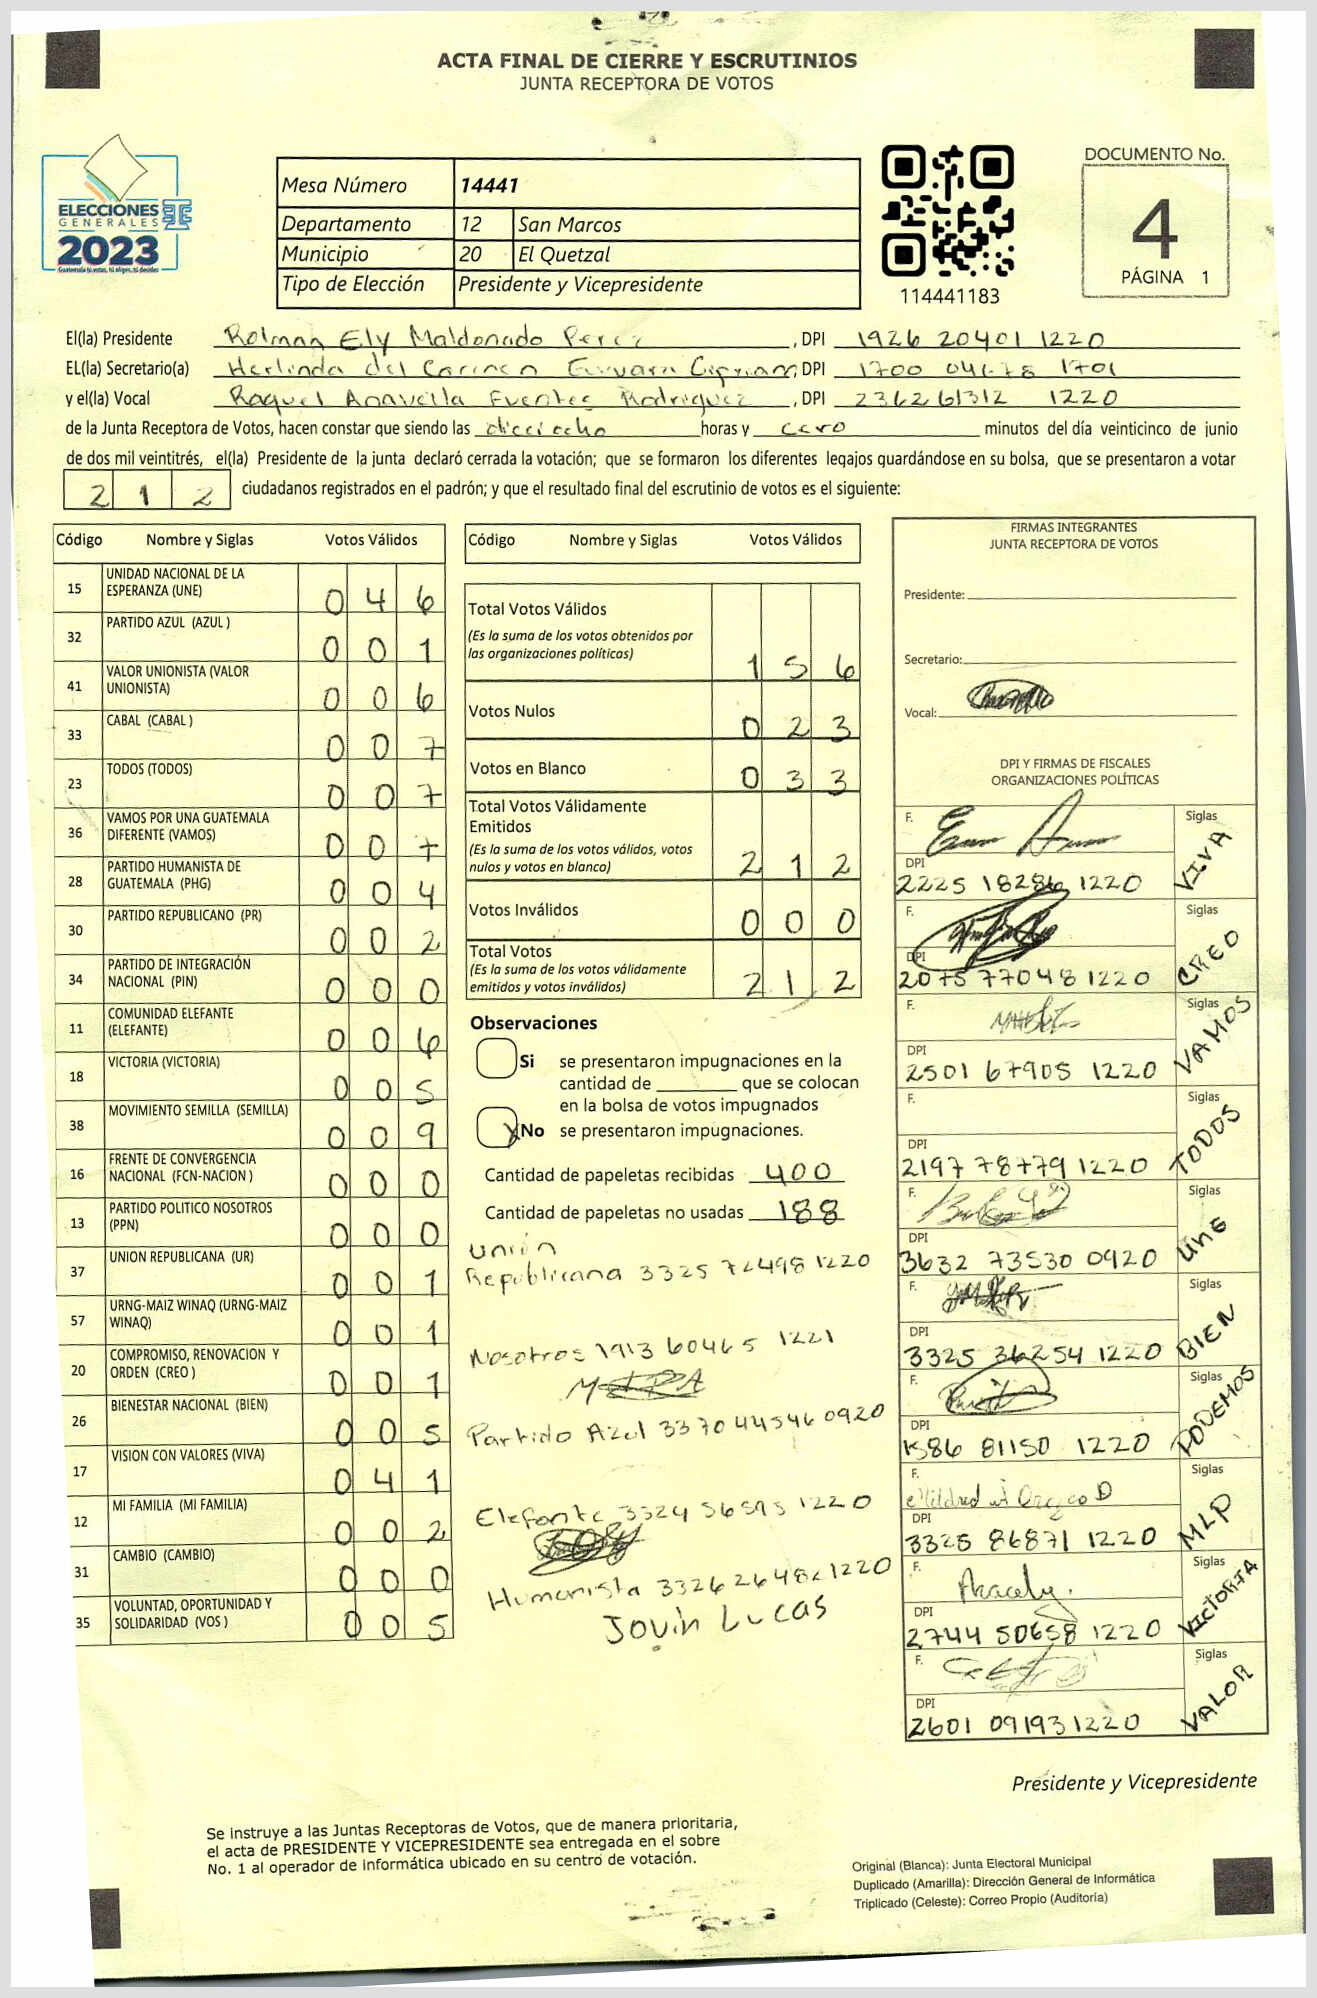 ACTA FINAL DE CIERRE Y ESCRUTINIOS
JUNTA RECEPTORA DE VOTOS
ELECCIONES
GENERALES
2023
Guatemala tú votas, tú eliges, tú decides
Mesa Número 14441
Departamento 12 San Marcos
Municipio 20 El Quetzal
Tipo de Elección Presidente y Vicepresidente
114441183
DOCUMENTO No.
4
PÁGINA 1
El(la) Presidente Rolman Ely Maldonado Perez, DPI 1926 20401 1220
EL(la) Secretario(a) Herlinda del Carmen, DPI 1700 1701
y el(la) Vocal Raquel Fuentes Rodriguez, DPI 2362 61312 1220
de la Junta Receptora de Votos, hacen constar que siendo las dieciocho horas y cero minutos del día veinticinco de junio
de dos mil veintitrés, el(la) Presidente de la junta declaró cerrada la votación; que se formaron los diferentes legajos guardándose en su bolsa, que se presentaron a votar
2 1 2 ciudadanos registrados en el padrón; y que el resultado final del escrutinio de votos es el siguiente:
Código Nombre y Siglas Votos Válidos
15 UNIDAD NACIONAL DE LA ESPERANZA (UNE) 0 4 6
32 PARTIDO AZUL (AZUL ) 0 0 1
41 VALOR UNIONISTA (VALOR UNIONISTA) 0 0 6
33 CABAL (CABAL ) 0 0 7
23 TODOS (TODOS) 0 0 7
36 VAMOS POR UNA GUATEMALA DIFERENTE (VAMOS) 0 0 7
28 PARTIDO HUMANISTA DE GUATEMALA (PHG) 0 0 4
30 PARTIDO REPUBLICANO (PR) 0 0 2
34 PARTIDO DE INTEGRACIÓN NACIONAL (PIN) 0 0 0
11 COMUNIDAD ELEFANTE (ELEFANTE) 0 0 6
18 VICTORIA (VICTORIA) 0 0 5
38 MOVIMIENTO SEMILLA (SEMILLA) 0 0 9
16 FRENTE DE CONVERGENCIA NACIONAL (FCN-NACION ) 0 0 0
13 PARTIDO POLITICO NOSOTROS (PPN) 0 0 0
37 UNION REPUBLICANA (UR) 0 0 1
57 URNG-MAIZ WINAQ (URNG-MAIZ WINAQ) 0 0 1
20 COMPROMISO, RENOVACION Y ORDEN (CREO ) 0 0 1
26 BIENESTAR NACIONAL (BIEN) 0 0 5
17 VISION CON VALORES (VIVA) 0 4 1
12 MI FAMILIA (MI FAMILIA) 0 0 2
31 CAMBIO (CAMBIO) 0 0 0
35 VOLUNTAD, OPORTUNIDAD Y SOLIDARIDAD (VOS ) 0 0 5
Código Nombre y Siglas Votos Válidos
Total Votos Válidos 1 5 6
(Es la suma de los votos obtenidos por
las organizaciones políticas)
Votos Nulos 0 2 3
Votos en Blanco 0 3 3
Total Votos Válidamente
Emitidos 2 1 2
(Es la suma de los votos válidos, votos
nulos y votos en blanco)
Votos Inválidos 0 0 0
Total Votos 2 1 2
(Es la suma de los votos válidamente
emitidos y votos inválidos)
Observaciones
Si se presentaron impugnaciones en la
cantidad de ________ que se colocan
en la bolsa de votos impugnados
X No se presentaron impugnaciones.
Cantidad de papeletas recibidas 400
Cantidad de papeletas no usadas 188
Unión
Republicana 3325 72498 1220
Nosotros 1913 60465 1221
Partido Azul 3370 44546 0920
Elefante 3324 56595 1220
Humanista 3326 2648 1220
Jovin Lucas
FIRMAS INTEGRANTES
JUNTA RECEPTORA DE VOTOS
Presidente:
Secretario:
Vocal:
DPI Y FIRMAS DE FISCALES
ORGANIZACIONES POLÍTICAS
F. Siglas VIVA
DPI 2225 18286 1220
F. Siglas CREO
DPI 2075 77048 1220
F. Siglas VAMOS
DPI 2501 67905 1220
F. Siglas TODOS
DPI 2197 78779 1220
F. Siglas UNE
DPI 3632 73530 0920
F. Siglas BIEN
DPI 3325 36254 1220
F. Siglas PODEMOS
DPI 1586 81150 1220
F. Mildred Orozco D Siglas MLP
DPI 3325 86871 1220
F. Aracely. Siglas VICTORIA
DPI 2744 50658 1220
F. Siglas VALOR
DPI 2601 09193 1220
Presidente y Vicepresidente
Se instruye a las Juntas Receptoras de Votos, que de manera prioritaria,
el acta de PRESIDENTE Y VICEPRESIDENTE sea entregada en el sobre
No. 1 al operador de informática ubicado en su centro de votación.
Original (Blanca): Junta Electoral Municipal
Duplicado (Amarilla): Dirección General de Informática
Triplicado (Celeste): Correo Propio (Auditoría)